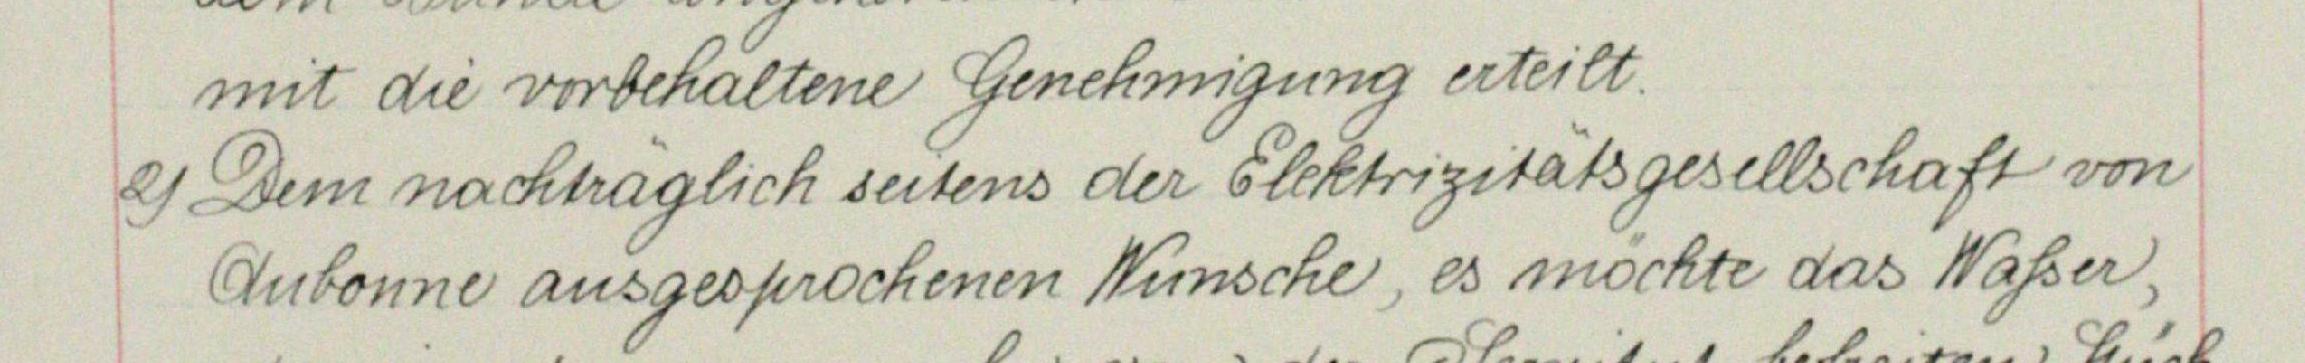 mit die vorbehaltene Genehmigung erteilt.
2) Dem nachträglich seitens der Elektrizitätsgesellschaft von
Aubonne ausgesprochenen Wunsche, es möchte das Waſser,